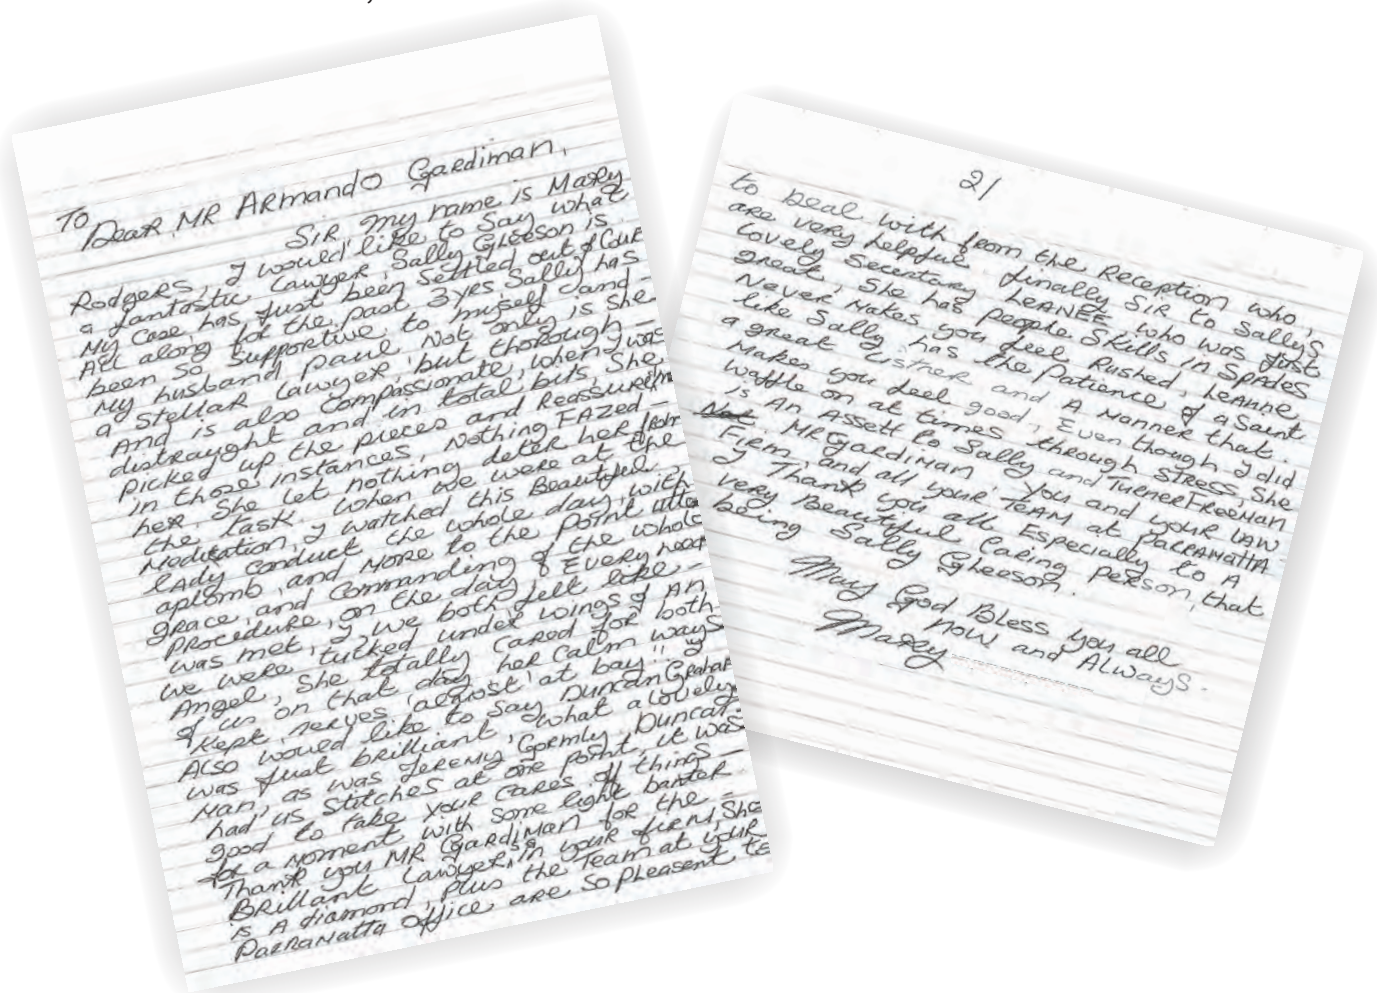 To
Dear MR ARmando GaRdiman,
SiR my name is MaRy
Rodgers, I would like to Say what
a fantastic Lawyer, Sally Gleeson is.
My Case has Just been Settled out of Cour
All along for the past 3 yRs Sally has
been so Supportive to myself and -
My husband paul. Not only is She
a StellaR Lawyer, but thorough -
And is also Compassionate, when I was
distraught and in total bits, She
picked up the pieces and ReassuRe
in those instances, Nothing FAZed -
heR. She let nothing deteR heR from
the task. When we were at the
Mediation, I watched this Beautiful
lAdy Conduct the whole day, with
aplomb, and MoRe to the Point
gRace, and Commanding of the whole
PRoceduRe, on the day, EveRy need
was met, I, we both felt like -
we weRe tucked undeR wings of An
Angel, She totally CaRed foR both
of us on that day, heR Calm ways
Kept neRves almost at bay!! I
Also would like to Say Duncan GRaha
was Just bRilliant, what a lovely
Man, as was JeRemy GoRmly, Duncan
had us StitcheS at one point, it was
good to take youR CaRes off things -
foR a moment with some light banteR
Thank you MR GaRdiMan foR the -
BRillant LawyeR, in youR fiRm, She
is A diamond, plus the Team at youR
PaRRaMatta office, aRe so pleasent to
2/
to Deal with fRom the Reception who,
aRe veRy helpful. finally SiR to Sally's
Lovely SecRetaRy LeANEE who was Just
gReat, She has people Skills in SpAdes
NeveR Makes you feel Rushed, LeAnne
like Sally has the Patience of a Saint
a gReat lisneR and A manneR that.
Makes you feel good, Even though I did
waffle on at times thRough StReSS, She
is An Assett to Sally and TuRneR FReeMAn
Not MR GaRdiMan you and youR LAW
FiRm, and all youR TEAM at PaRRaMatta
I Thank you all Especially to A
veRy Beautiful CaRing peRson, that
being Sally Gleeson.
May God Bless you all
now and Always.
MaRy